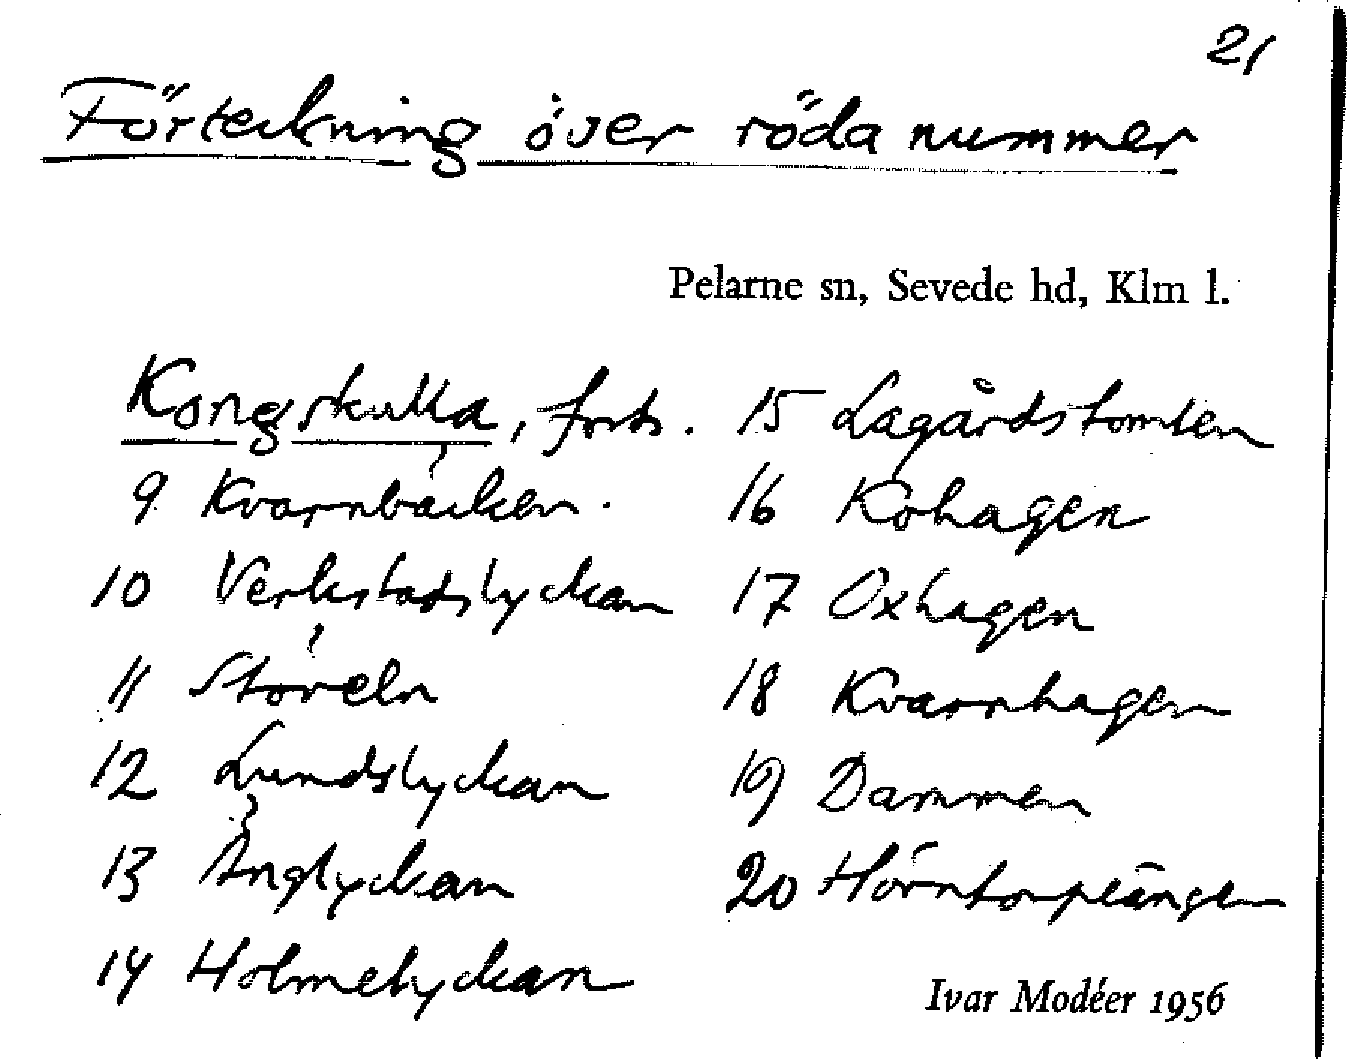 21
Förteckning över röda nummer
Pelarne sn, Sevede hd, Klm l.
Kongskulla, forts.
9 Kvarnbäcken.
10 Verkstadslyckan
11 Störeln
12 Lundslyckan
13 Änglyckan
14 Holmelyckan
15 Lagårdstomten
16 Kohagen
17 Oxhagen
18 Kvarnhagen
19 Dammen
20 Hörntorpeängen
Ivar Modéer 1956